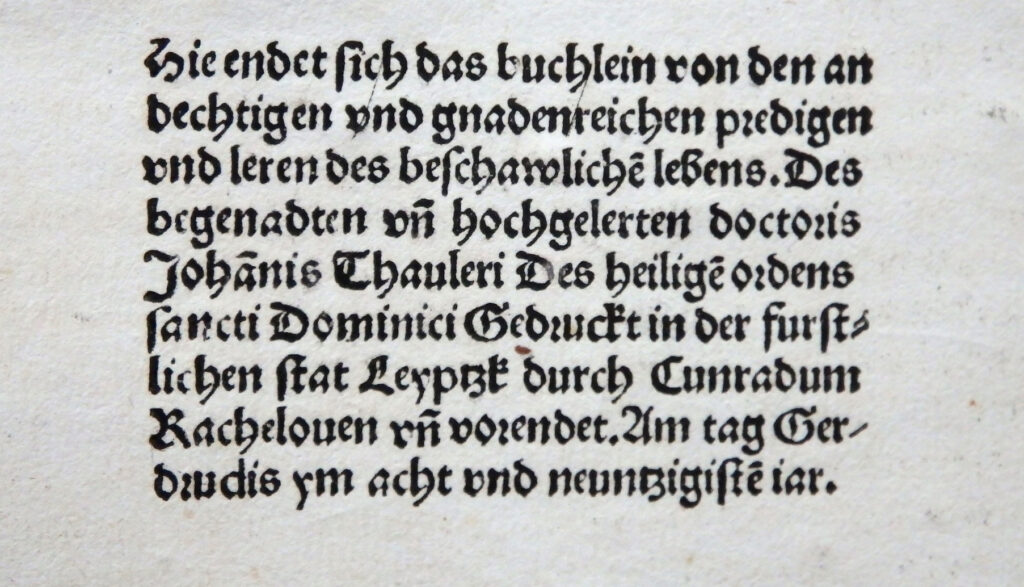 Hie endet sich das buchlein von den an
dechtigen vnd gnadenreichen predigen
vnd leren des beschawlichē lebens. Des
begenadten vn̄ hochgelerten doctoris
Johānis Thauleri Des heiligē ordens
sancti Dominici Gedruckt in der furst-
lichen stat Leyptzk durch Cunradum
Kachelouen vn̄ vorendet. Am tag Ger-
drudis ym acht vnd neuntzigistē iar.